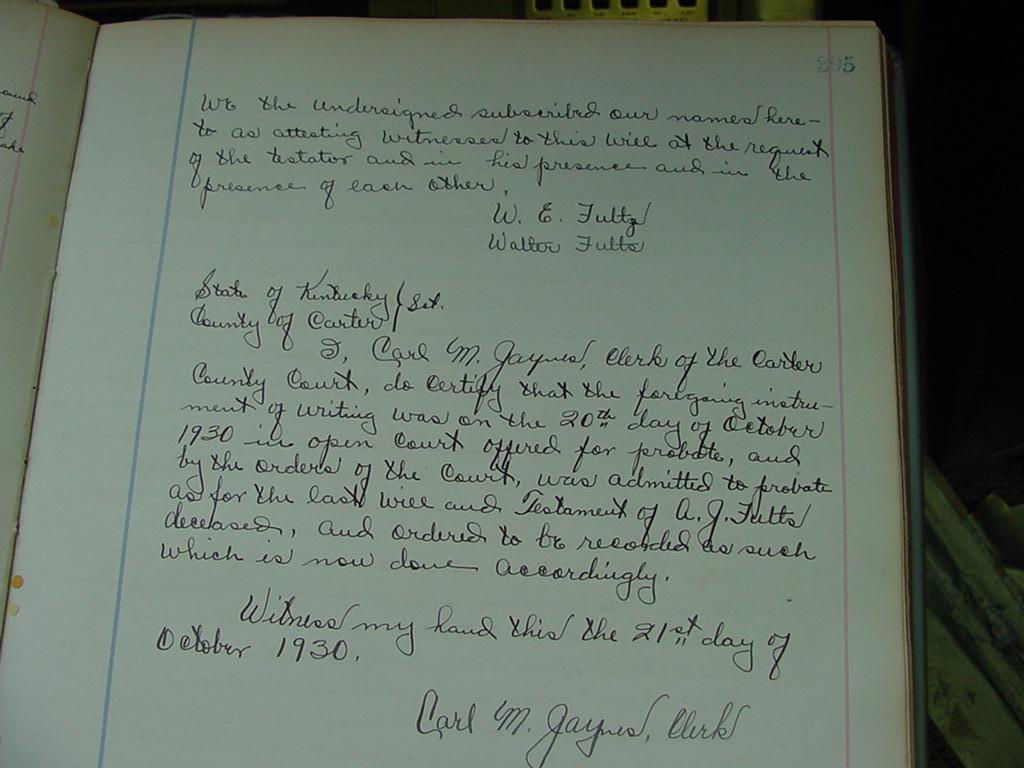 We the undersigned subscribed our names here-
to as attesting witnesses to this will at the request
of the testator and in his presence and in the
presence of each other.
W. E. Fultz
Walter Fults
State of Kentucky / Sct.
County of Carter
I, Carl M. Jaynes, Clerk of the Carter
County Court, do certify that the foregoing instru-
ment of writing was on the 20th day of October
1930 in open Court offered for probate, and
by the orders of the Court, was admitted to probate
as for the last will and Testament of A. J. Fults
deceased, and ordered to be recorded as such
which is now done accordingly.
Witness my hand this the 21st day of
October 1930.
Carl M. Jaynes, Clerk